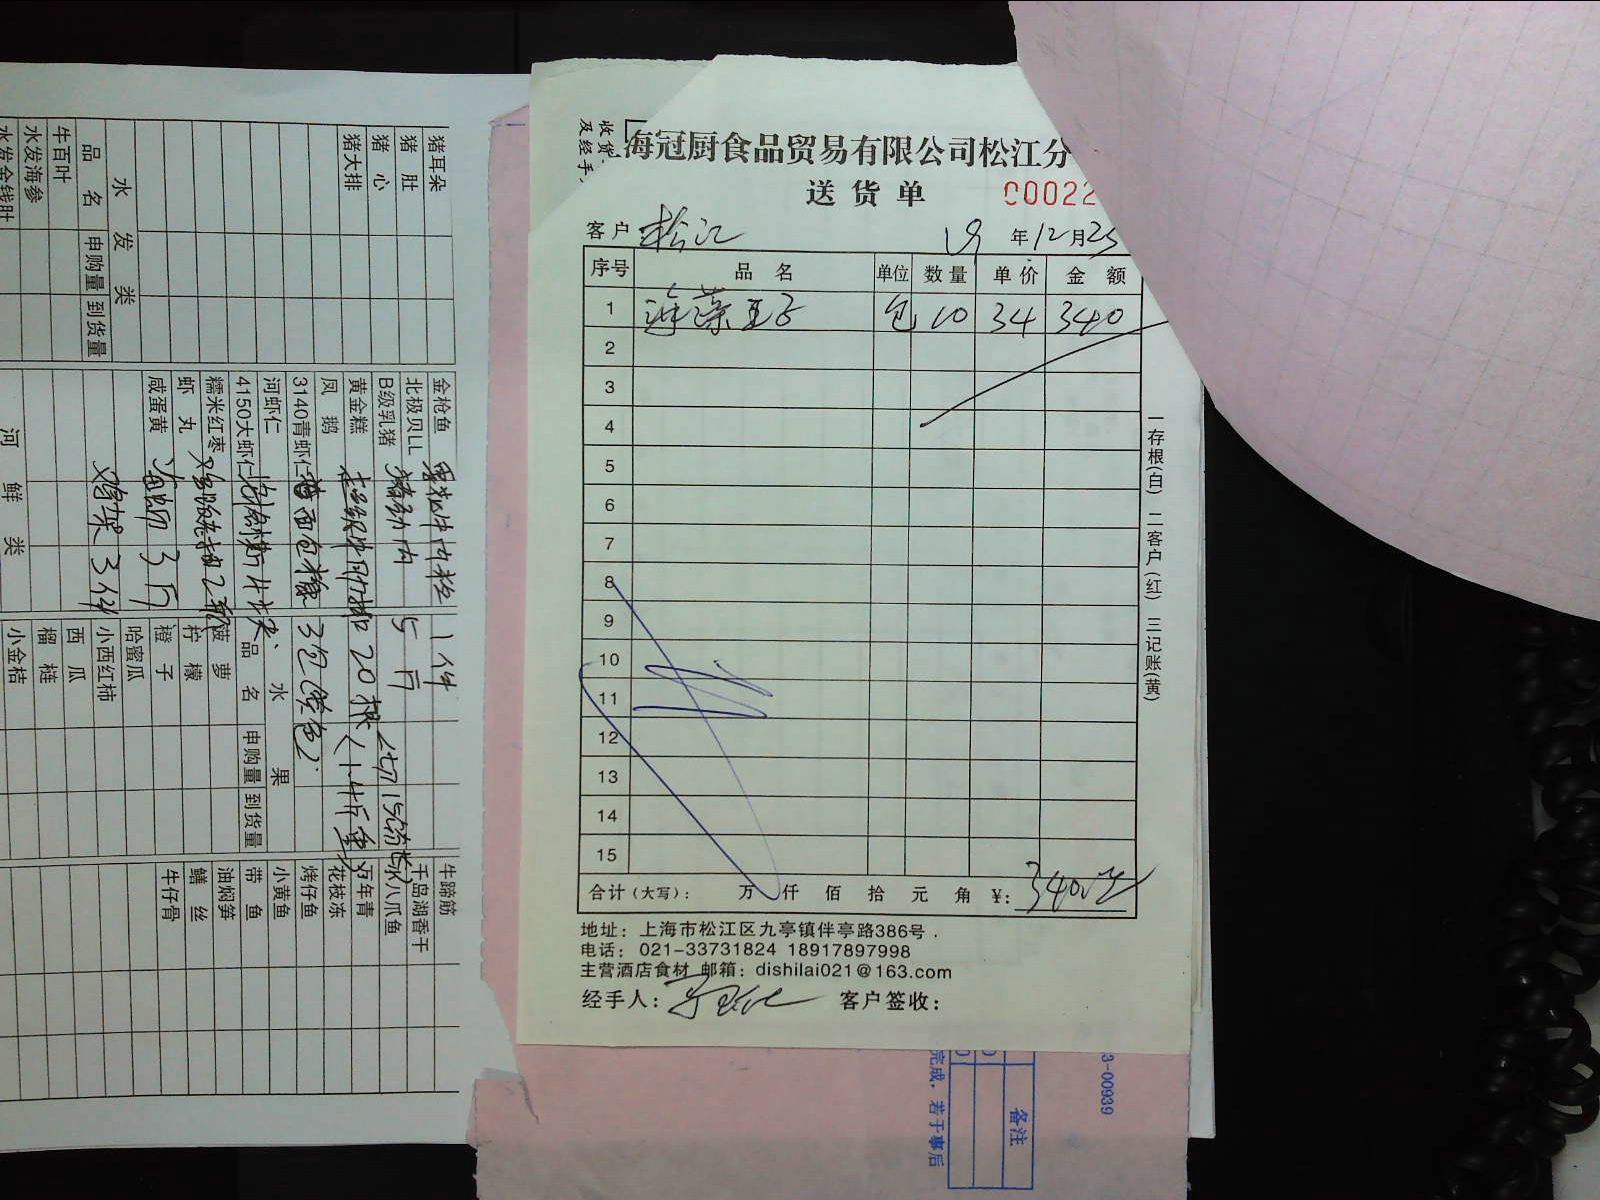 海冠厨食品贸易有限公司松江分
送货单 00022
客户 松江 19 年 12 月 25
序号 品名 单位 数量 单价 金额
1 包 10 34 340
2
3
4
5
6
7
8
9
10
11
12
13
14
15
合计(大写): 万 仟 佰 拾 元 角 ¥: 340
地址: 上海市松江区九亭镇伴亭路386号.
电话: 021-33731824 18917897998
主营酒店食材 邮箱: dishilai021@163.com
经手人: 客户签收:
一存根(白) 二客户(红) 三记账(黄)
收货
及经手
猪耳朵
猪肚
猪心
猪大排
水发类
品名 申购量 到货量
牛百叶
水发海参
水发金钱肚
金枪鱼 1件
北极贝LL 5斤
B级乳猪
黄金糕 20根
凤鹅 面包糠 3包
3140青虾仁
河虾仁
4150大虾仁
糯米红枣
虾丸
咸蛋黄 3斤
鸡架 3件
河鲜类
水果
品名 申购量 到货量
菠萝
柠檬
橙子
哈蜜瓜
小西红柿
西瓜
榴梿
小金桔
牛蹄筋
千岛湖香干
八爪鱼
万年青
花枝冻
烤仔鱼
小黄鱼
带鱼
油焖笋
鳝丝
牛仔骨
3-00939
备注
完成,若于事后